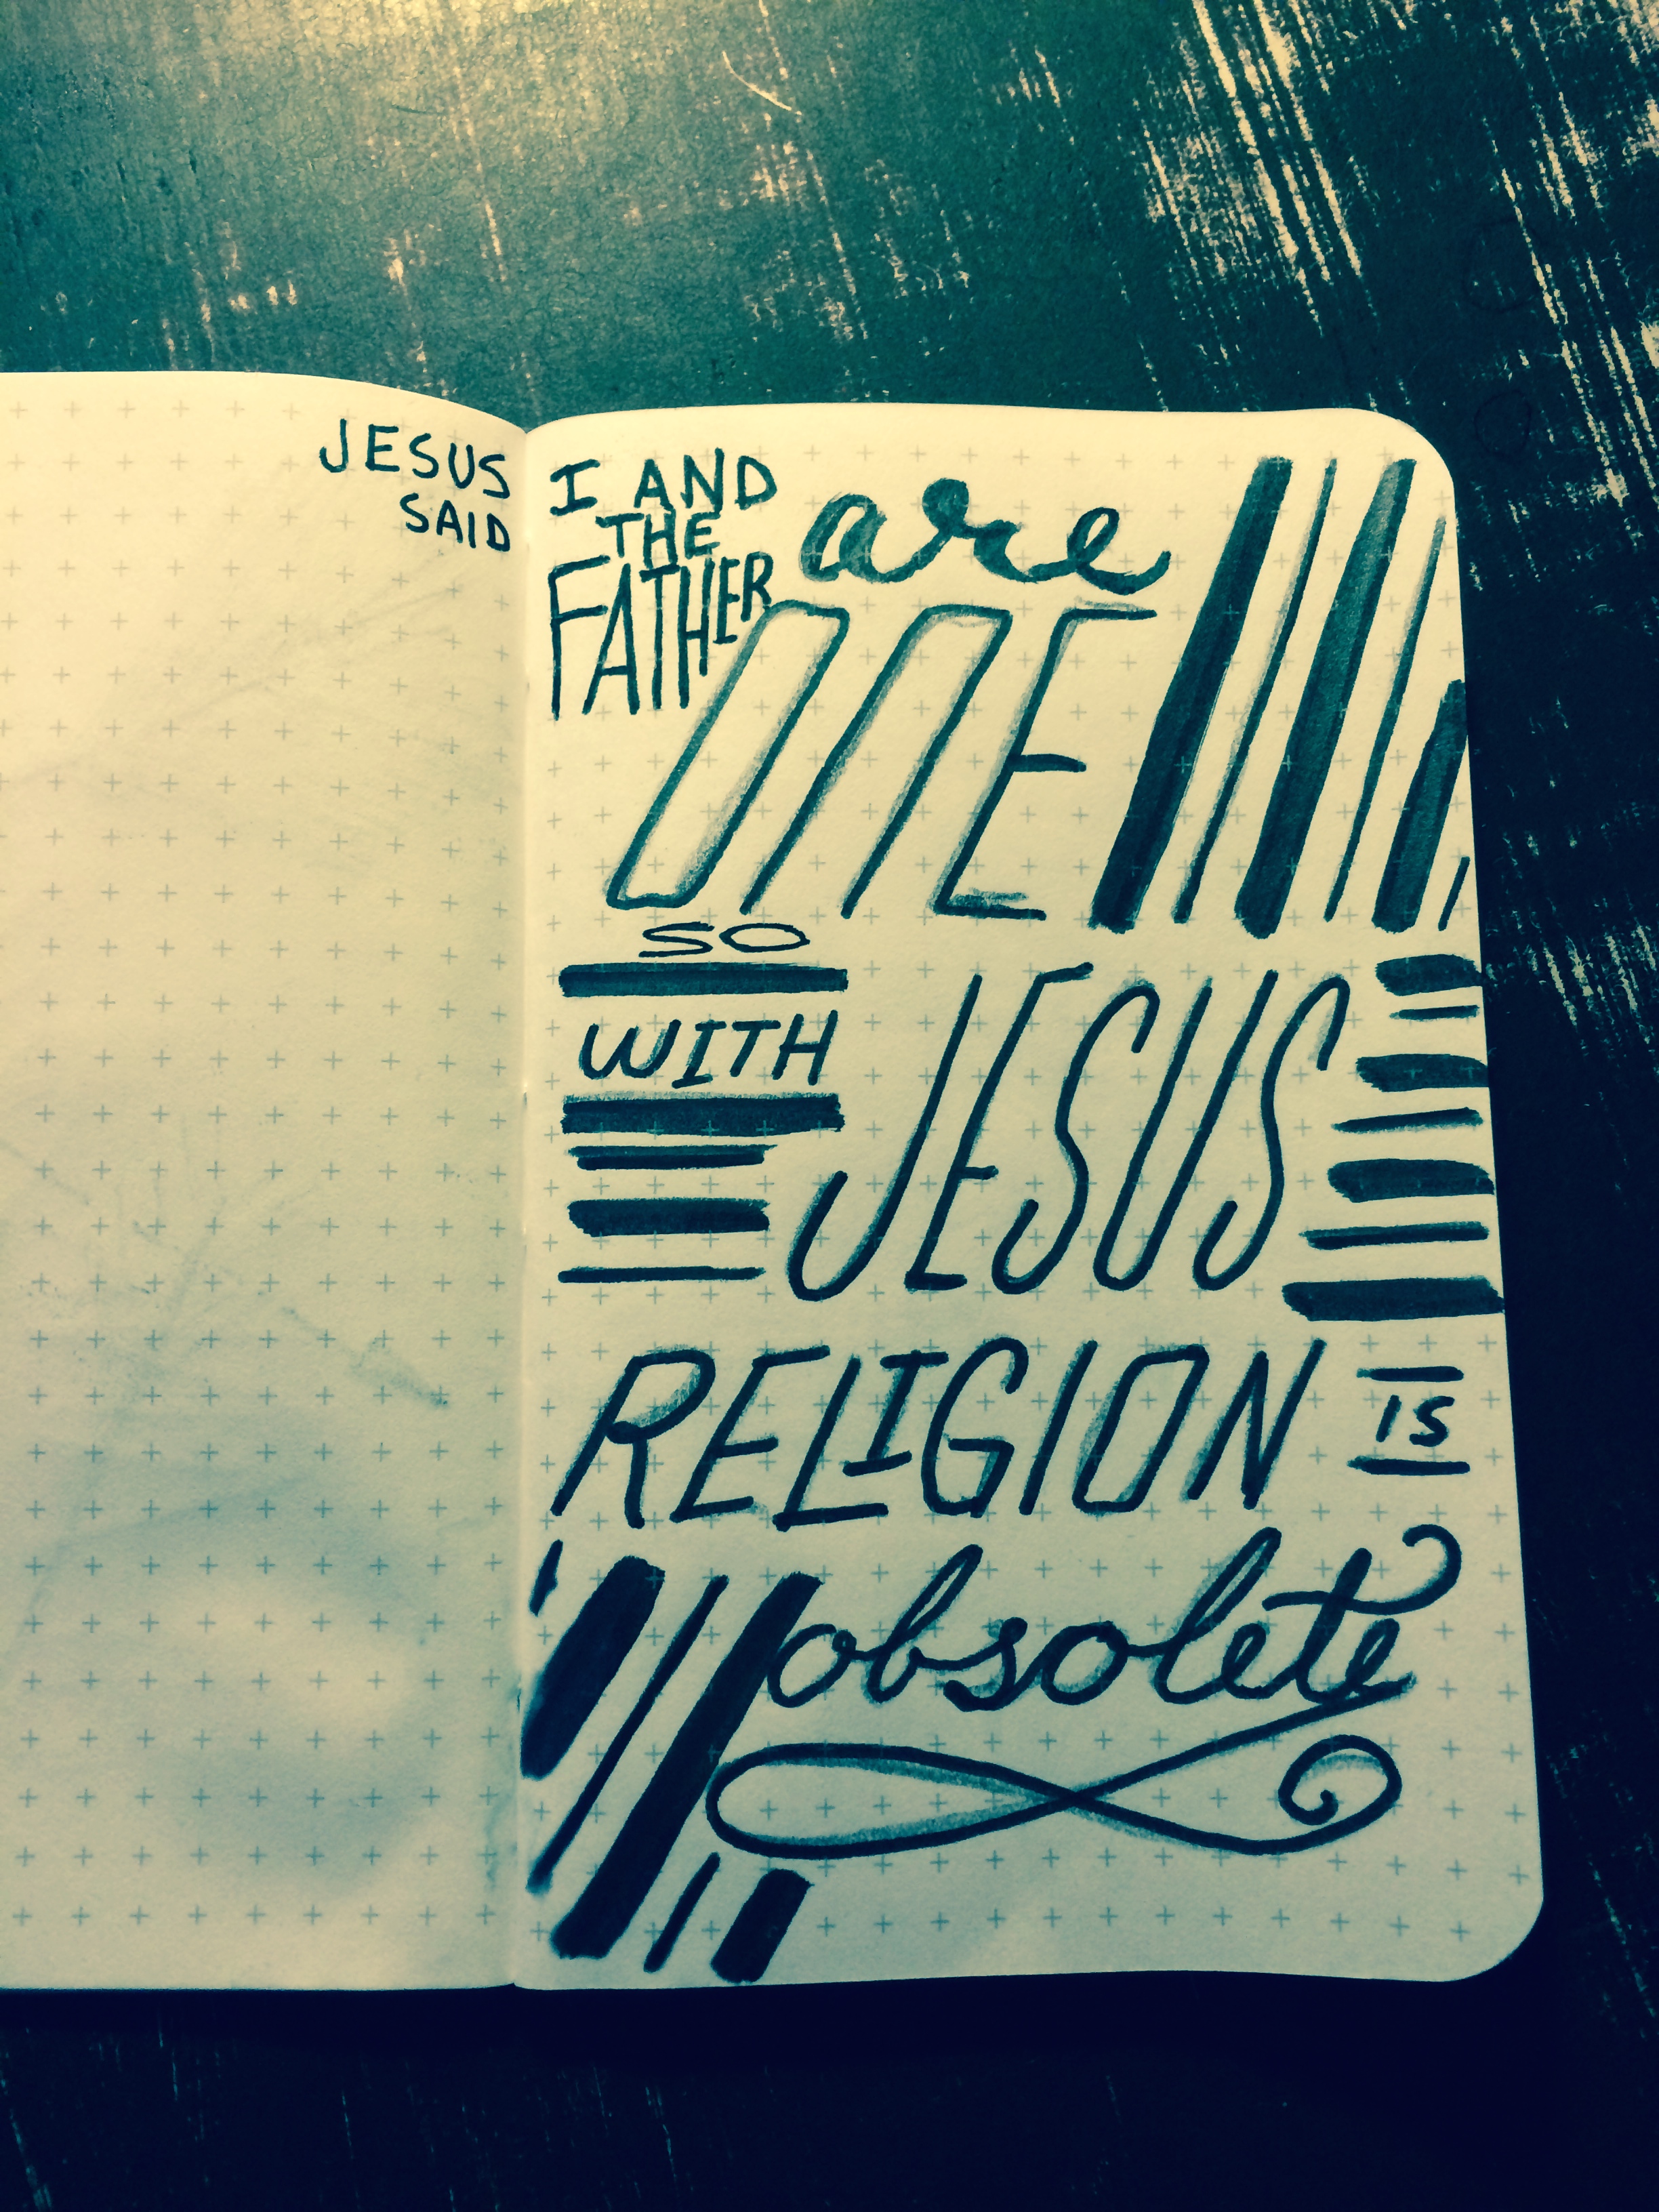 JESUS
SAID
I AND
THE
FATHER
are
ONE
SO
WITH
JESUS
RELIGION
IS
obsolete